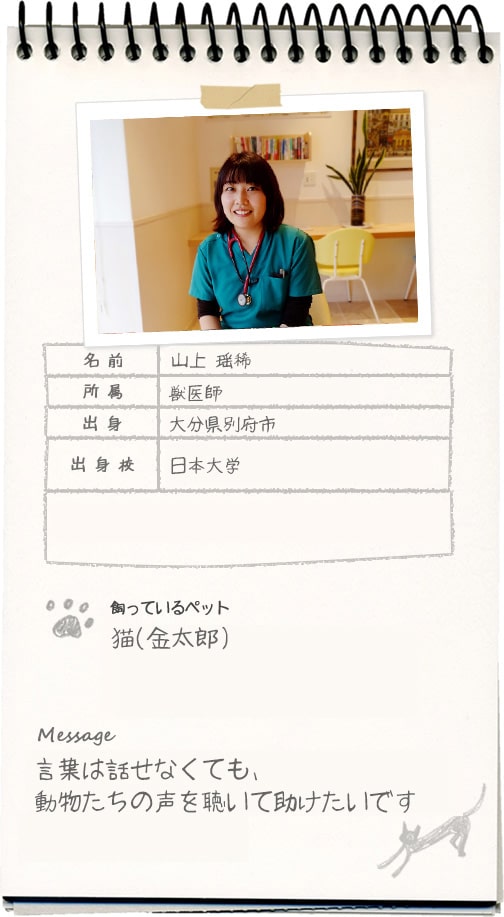 名前 山上 瑶稀
所属 獣医師
出身 大分県別府市
出身校 日本大学
飼っているペット
猫(金太郎)
Message
言葉は話せなくても、
動物たちの声を聴いて助けたいです